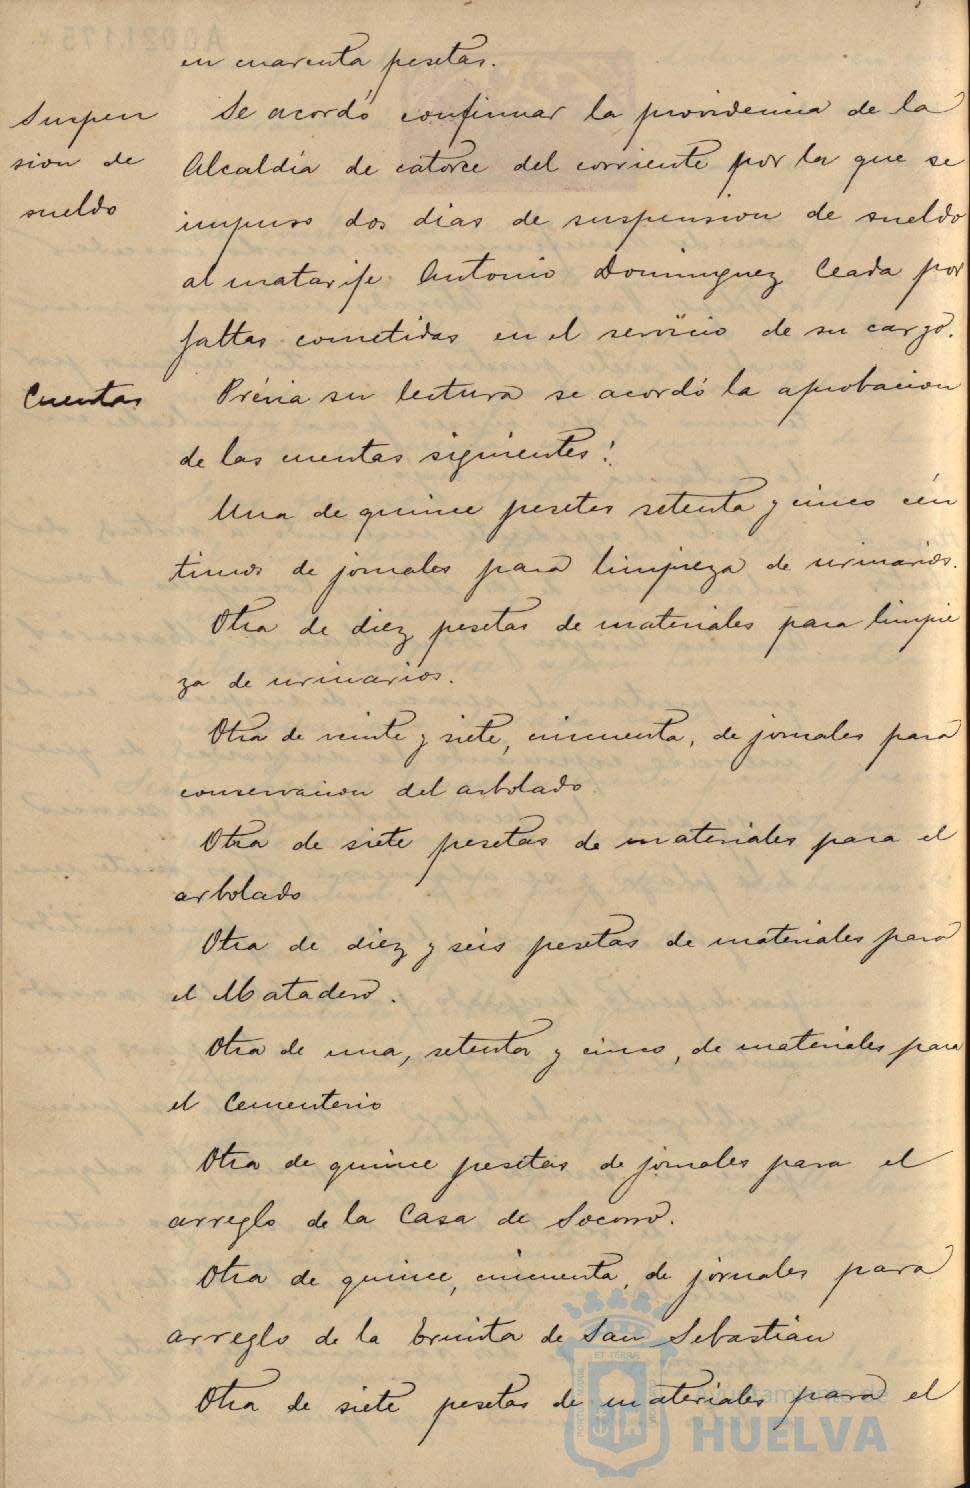 en cuarenta pesetas.
Suspen
sion de
sueldo
Se acordó confirmar la providencia de la
Alcaldía de catorce del corriente por la que se
impuso dos dias de suspension de sueldo
al matarife Antonio Dominguez Ceada por
faltas cometidas en el servicio de su cargo.
Cuentas
Prévia su lectura se acordó la aprobacion
de las cuentas siguientes:
Una de quince pesetas setenta y cinco cén
timos de jornales para limpieza de urinarios.
Otra de diez pesetas de materiales para limpie
za de urinarios.
Otra de veinte y siete, cincuenta, de jornales para
conservacion del arbolado.
Otra de siete pesetas de materiales para el
arbolado
Otra de diez y seis pesetas de materiales para
el Matadero.
Otra de una, setenta y cinco, de materiales para
el Cementerio
Otra de quince pesetas de jornales para el
arreglo de la Casa de Socorro.
Otra de quince, cincuenta, de jornales para
arreglo de la Ermita de San Sebastián
Otra de siete pesetas de materiales para el
Ayuntamiento de
HUELVA